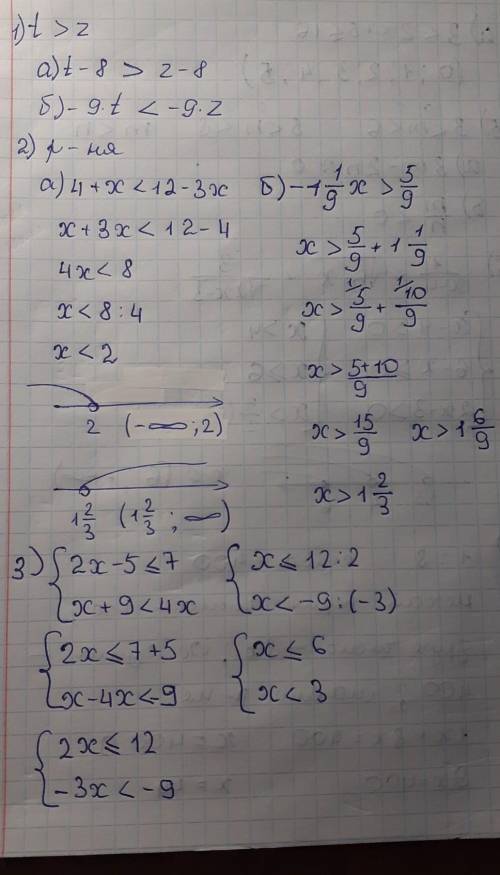 1) t > z
а) t - 8 > z - 8
б) - 9·t < -9·z
2) р - ня
а) 4 + x < 12 - 3x
x + 3x < 12 - 4
4x < 8
x < 8 : 4
x < 2
2 (-∞; 2)
1 2/3 (1 2/3; ∞)
б) -1 1/9 x > 5/9
x > 5/9 + 1 1/9
x > 5/9 + 10/9
x > 5+10/9
x > 15/9 x > 1 6/9
x > 1 2/3
3) { 2x - 5 ≤ 7
x + 9 < 4x
{ 2x ≤ 7 + 5
x - 4x < -9
{ 2x ≤ 12
-3x < -9
{ x ≤ 12 : 2
x < -9 : (-3)
{ x ≤ 6
x < 3